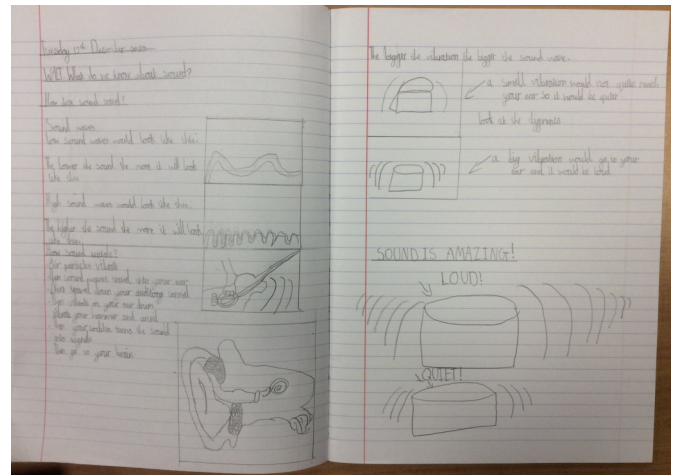 Tuesday 15th December
WALT What do we know about sound?
How does sound
Sound waves
Low sound waves would look like this:
The lower the sound the more it will look
like this
High sound waves would look like this.
The higher the sound the more it will look
like this
How sound works?
Air particles vibrate
sound your ear
travel down your auditory canal
vibrate on your ear drum
vibrate your hammer and anvil
your turns the sound
into signals
Then go to your brain
The bigger the vibration the bigger the sound wave.
a small vibration would not quite reach
your ear so it would be quiet
look at the
a big vibration would go to your
ear and it would be loud
SOUND IS AMAZING!
LOUD!
QUIET!